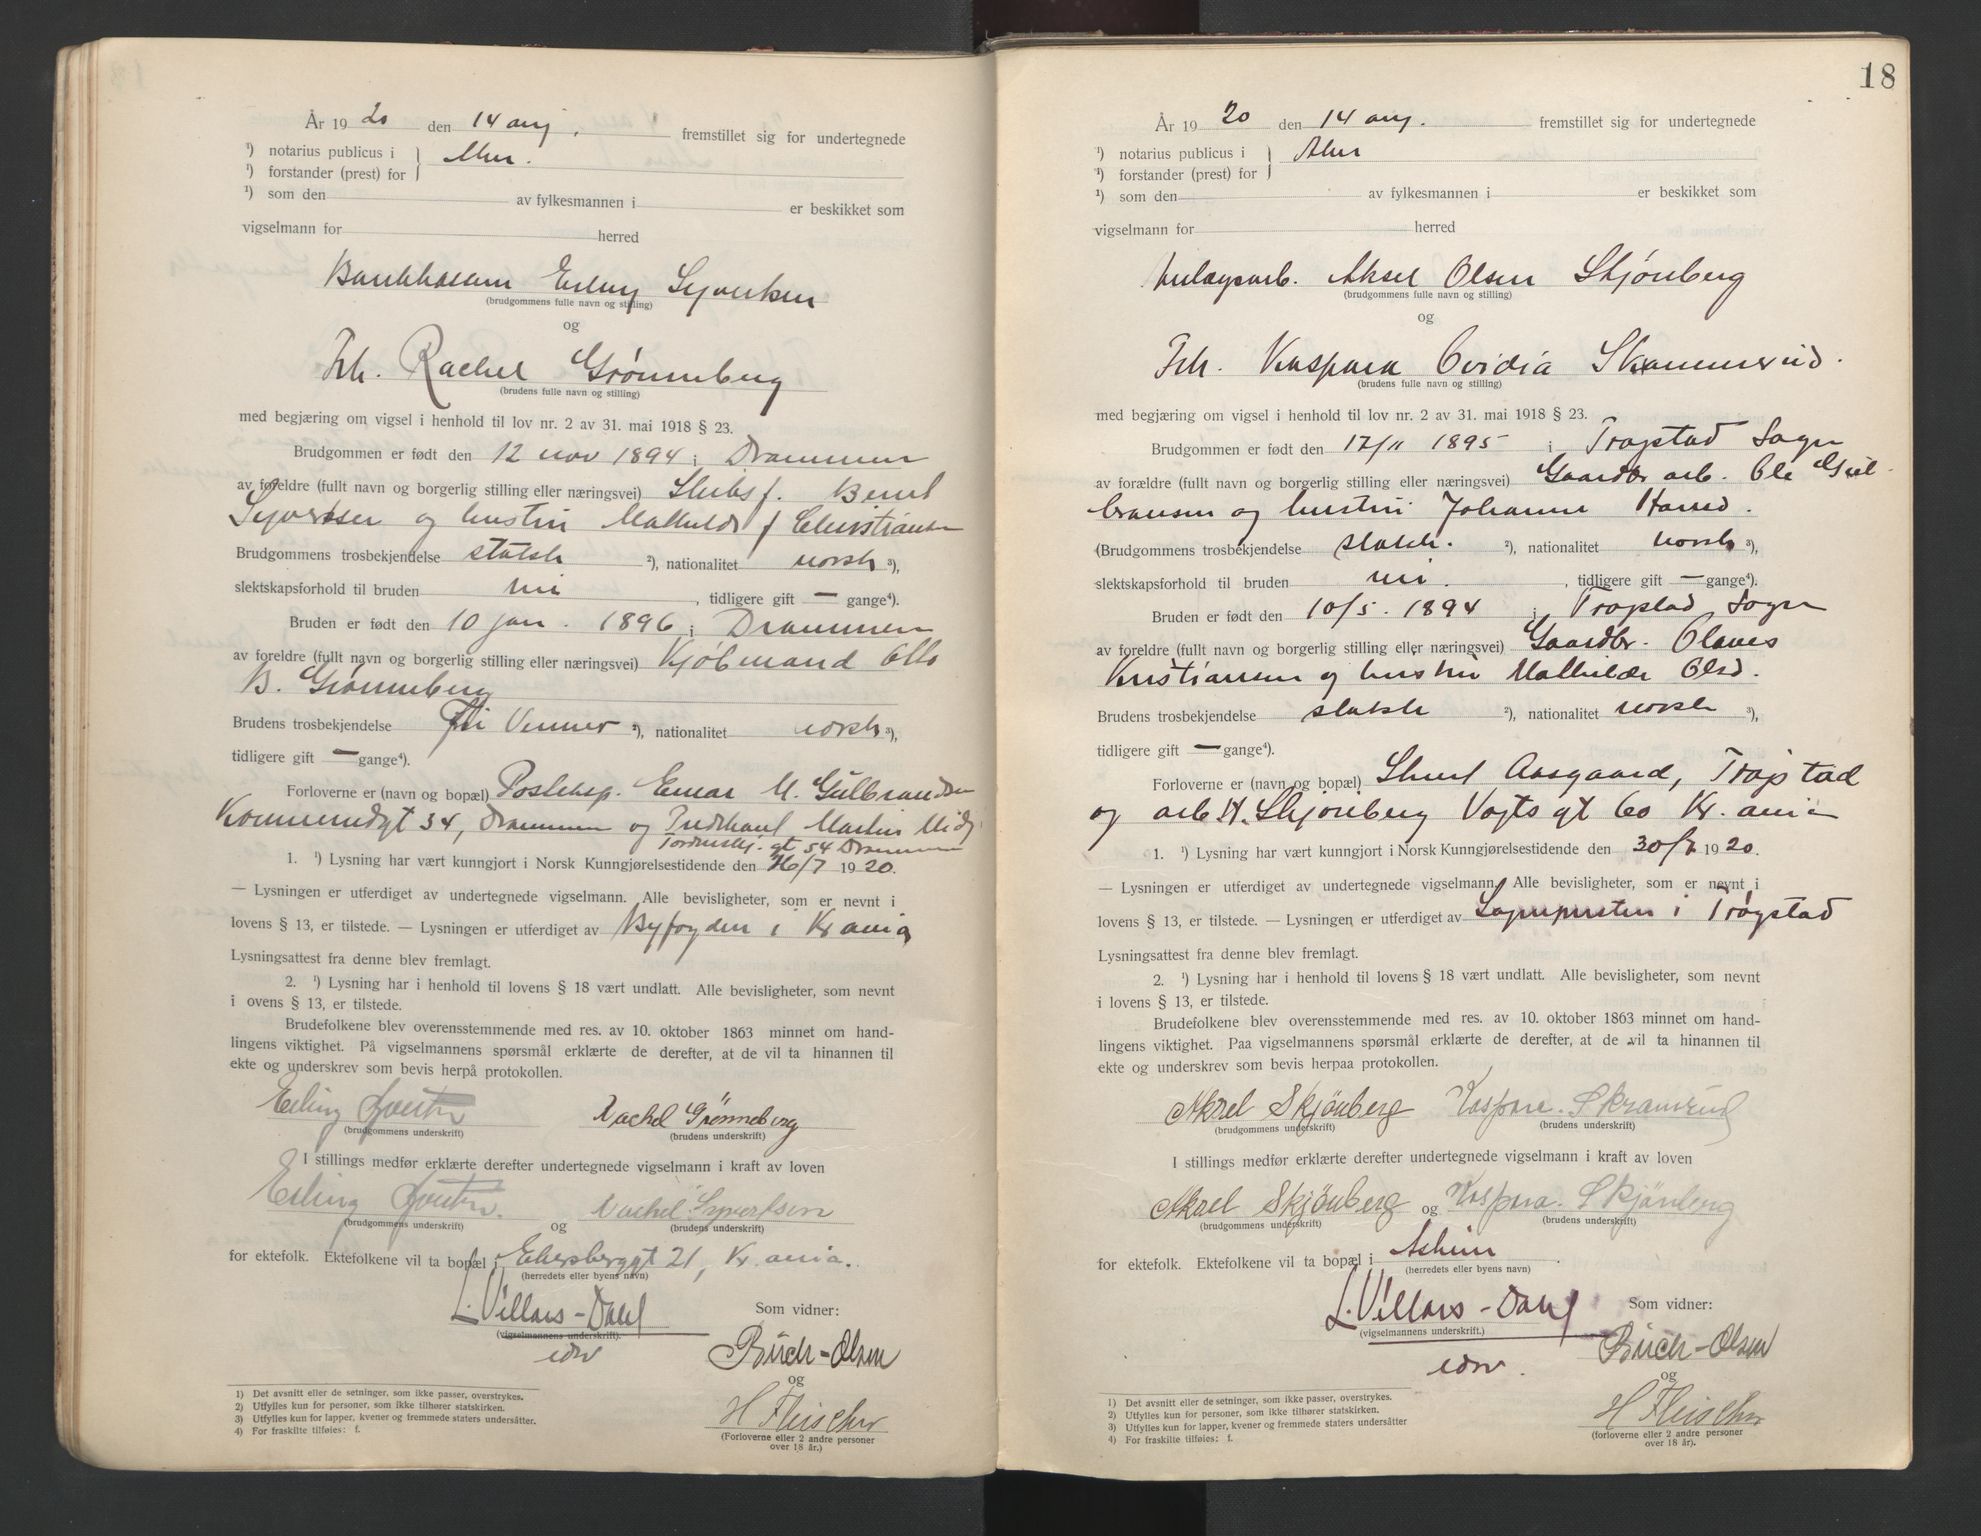 År 1920 den 14 aug. fremstillet sig for undertegnede
¹) notarius publicus i } Aker.
¹) forstander (prest) for
¹) som den av fylkesmannen i er beskikket som
vigselmann for herred
Erling Syvertsen
(brudgommens fulle navn og stilling)
og
Frk. Rachel Grønneberg
(brudens fulle navn og stilling)
med begjæring om vigsel i henhold til lov nr. 2 av 31. mai 1918 § 23.
Brudgommen er født den 12 nov 1894 i Drammen
av foreldre (fullt navn og borgerlig stilling eller næringsvei) Skibsf. Bernt
Syvertsen og hustru Mathilde f Christiansen
Brudgommens trosbekjendelse statsk ²), nationalitet norsk ³),
slektskapsforhold til bruden nei, tidligere gift — gange⁴).
Bruden er født den 10 jan. 1896 i Drammen
av foreldre (fullt navn og borgerlig stilling eller næringsvei) Kjøbmand Otto
B. Grønneberg
Brudens trosbekjendelse Fri Venner ²), nationalitet norsk ³),
tidligere gift — gange⁴).
Forloverne er (navn og bopæl) Posteksp. Einar M. Gulbrandsen
34, Drammen og Martin
gt 54 Drammen
1. ¹) Lysning har vært kunngjort i Norsk Kunngjørelsestidende den 26/7 1920.
— Lysningen er utferdiget av undertegnede vigselmann. Alle bevisligheter, som er nevnt i
lovens § 13, er tilstede. — Lysningen er utferdiget av Byfogden i Kr.ania
Lysningsattest fra denne blev fremlagt.
2. ¹) Lysning har i henhold til lovens § 18 vært undlatt. Alle bevisligheter, som nevnt
i ovens § 13, er tilstede.
Brudefolkene blev overensstemmende med res. av 10. oktober 1863 minnet om hand-
lingens viktighet. På vigselmannens spørsmål erklærte de derefter, at de vil ta hinannen til
ekte og underskrev som bevis herpå protokollen.
Erling Rachel Grønneberg
(brudgommens underskrift) (brudens underskrift)
I stillings medfør erklærte derefter undertegnede vigselmann i kraft av loven
Erling og Rachel Syvertsen
(brudgommens underskrift) (brudens underskrift)
for ektefolk. Ektefolkene vil ta bopæl i Eilersberggt 21, Kr.ania.
(herredets eller byens navn)
L. Villars-Dahl Som vidner:
(vigselmannens underskrift).
edsv Buch-Olsen
og
H Fleischer
(Forloverne eller 2 andre personer
over 18 år.)
1) Det avsnitt eller de setninger, som ikke passer, overstrykes.
2) Utfylles kun for personer, som ikke tilhører statskirken.
3) Utfylles kun for lapper, kvener og fremmede staters undersåtter.
4) For fraskilte tilføies: f.
18
År 1920 den 14 aug. fremstillet sig for undertegnede
¹) notarius publicus i } Aker
¹) forstander (prest) for
¹) som den av fylkesmannen i er beskikket som
vigselmann for herred
Anlægsarb. Aksel Olsen Skjönberg
(brudgommens fulle navn og stilling)
og
Frk. Kaspara Ovidia Skammerud.
(brudens fulle navn og stilling)
med begjæring om vigsel i henhold til lov nr. 2 av 31. mai 1918 § 23.
Brudgommen er født den 17/11 1895 i Trøgstad Sogn
av forældre (fullt navn og borgerlig stilling eller næringsvei) Gaardbr arb. Ole Gul
bransen og hustru Johanne Hansd.
(Brudgommens trosbekjendelse statsk. ²), nationalitet norsk ³),
slektskapsforhold til bruden nei., tidligere gift — gange⁴).
Bruden er født den 10/5. 1894 i Trøgstad Sogn
av foreldre (fullt navn og borgerlig stilling eller næringsvei) Gaardbr. Olaves
Kristiansen og hustru Mathilde Olsd.
Brudens trosbekjendelse statsk ²), nationalitet norsk ³),
tidligere gift — gange⁴).
Forloverne er (navn og bopæl) Aasgaard, Trøgstad
og arb H. Skjönberg Vogts gt 60 Kr.ania
1. ¹) Lysning har vært kunngjort i Norsk Kunngjørelsestidende den 30/7 1920.
— Lysningen er utferdiget av undertegnede vigselmann. Alle bevisligheter, som er nevnt i
lovens § 13, er tilstede. — Lysningen er utferdiget av Sognepresten i Trøgstad
Lysningsattest fra denne blev fremlagt.
2. ¹) Lysning har i henhold til lovens § 18 vært undlatt. Alle bevisligheter, som nevnt
i lovens § 13, er tilstede.
Brudefolkene blev overensstemmende med res. av 10. oktober 1863 minnet om hand-
lingens viktighet. Paa vigselmannens spørsmål erklærte de derefter, at de vil ta hinannen til
ekte og underskrev som bevis herpaa protokollen.
Aksel Skjönberg Kaspara. Skramrud
(brudgommens underskrift) (brudens underskrift)
I stillings medfør erklærte derefter undertegnede vigselmann i kraft av loven
Aksel Skjönberg og Kaspara. Skjönberg
(brudgommens underskrift) (brudens underskrift)
for ektefolk. Ektefolkene vil ta bopæl i Askim.
(herredets eller byens navn)
L. Villars-Dahl Som vidner:
(vigselmannens underskrift.)
edsv. Buch-Olsen
og
H Fleischer
(forloverne eller 2 andre personer
over 18 år).
1) Det avsnitt eller de setninger, som ikke passer, overstrykes.
2) Utfylles kun for personer, som ikke tilhører statskirken.
3) Utfylles kun for lapper, kvener og fremmede staters undersåtter
4) For fraskilte tilføies: f.